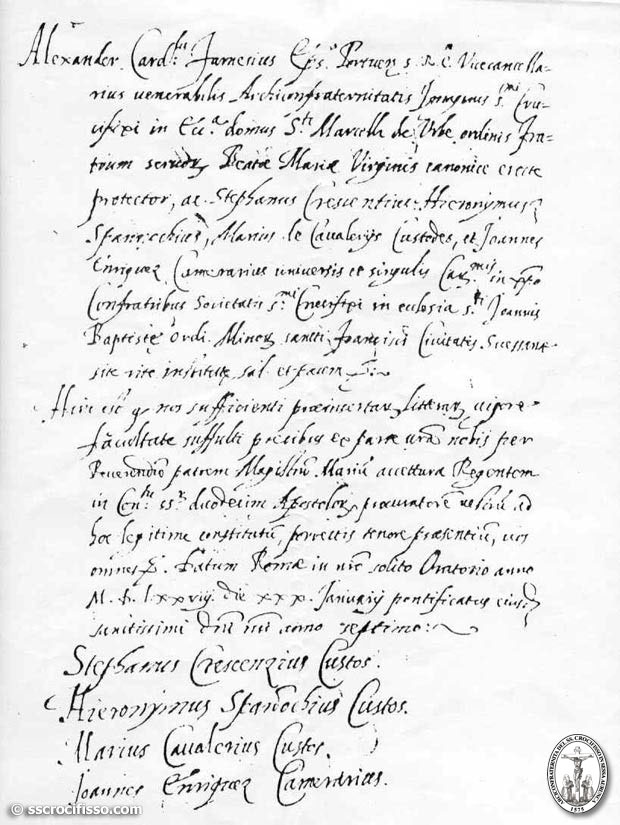 Alexander Card.lis Farnesius Eps. Portuen. S. R. E. Vicecancella=
rius venerabilis Archiconfraternitatis Imaginis s.mi Cru=
cifixi in Ecc.a domus S.ti Marcelli de Urbe ordinis fra=
trum servor. Beatae Mariae Virginis canonice erecte
protector, ac Stephanus Crescentius, Hieronymus
Spannochius, Marius de Cavalerijs Custodes, et Joannes
Enriquez Camerarius universis et singulis Car.mis in xpo
Confratribus Societatis s.mi Crucifixi in ecclesia s.ti Joannis
Baptiste Ordi. Minor. sancti Francisci Civitatis Suessanae
site rite institute, sal. et
Hinc est q. nos sufficienti praeinsertar. litterar. vigore
facultate suffulti precibus ex parte vra nobis per
Reverendum patrem Magistrum Marium accettura Regentem
in Con.tu ss. duodecim Apostolor. procuratore vestru ad
hoc legitime constitutu, porrectis tenore praesentiu, vos
omnes Datum Romae in nro solito Oratorio anno
M. D. lxxviij die xxx. Januarij pontificatus eiusd.
sanctissimi dni nri anno septimo
Stephanus Crescenzius Custos.
Hieronymus Spannochius Custos.
Marius Cavalerius Custos.
Joannes Enriquez Camerarius.
© sscrocifisso.com
ARCICONFRATERNITA DEL SS. CROCIFISSO IN SESSA AURUNCA
1575